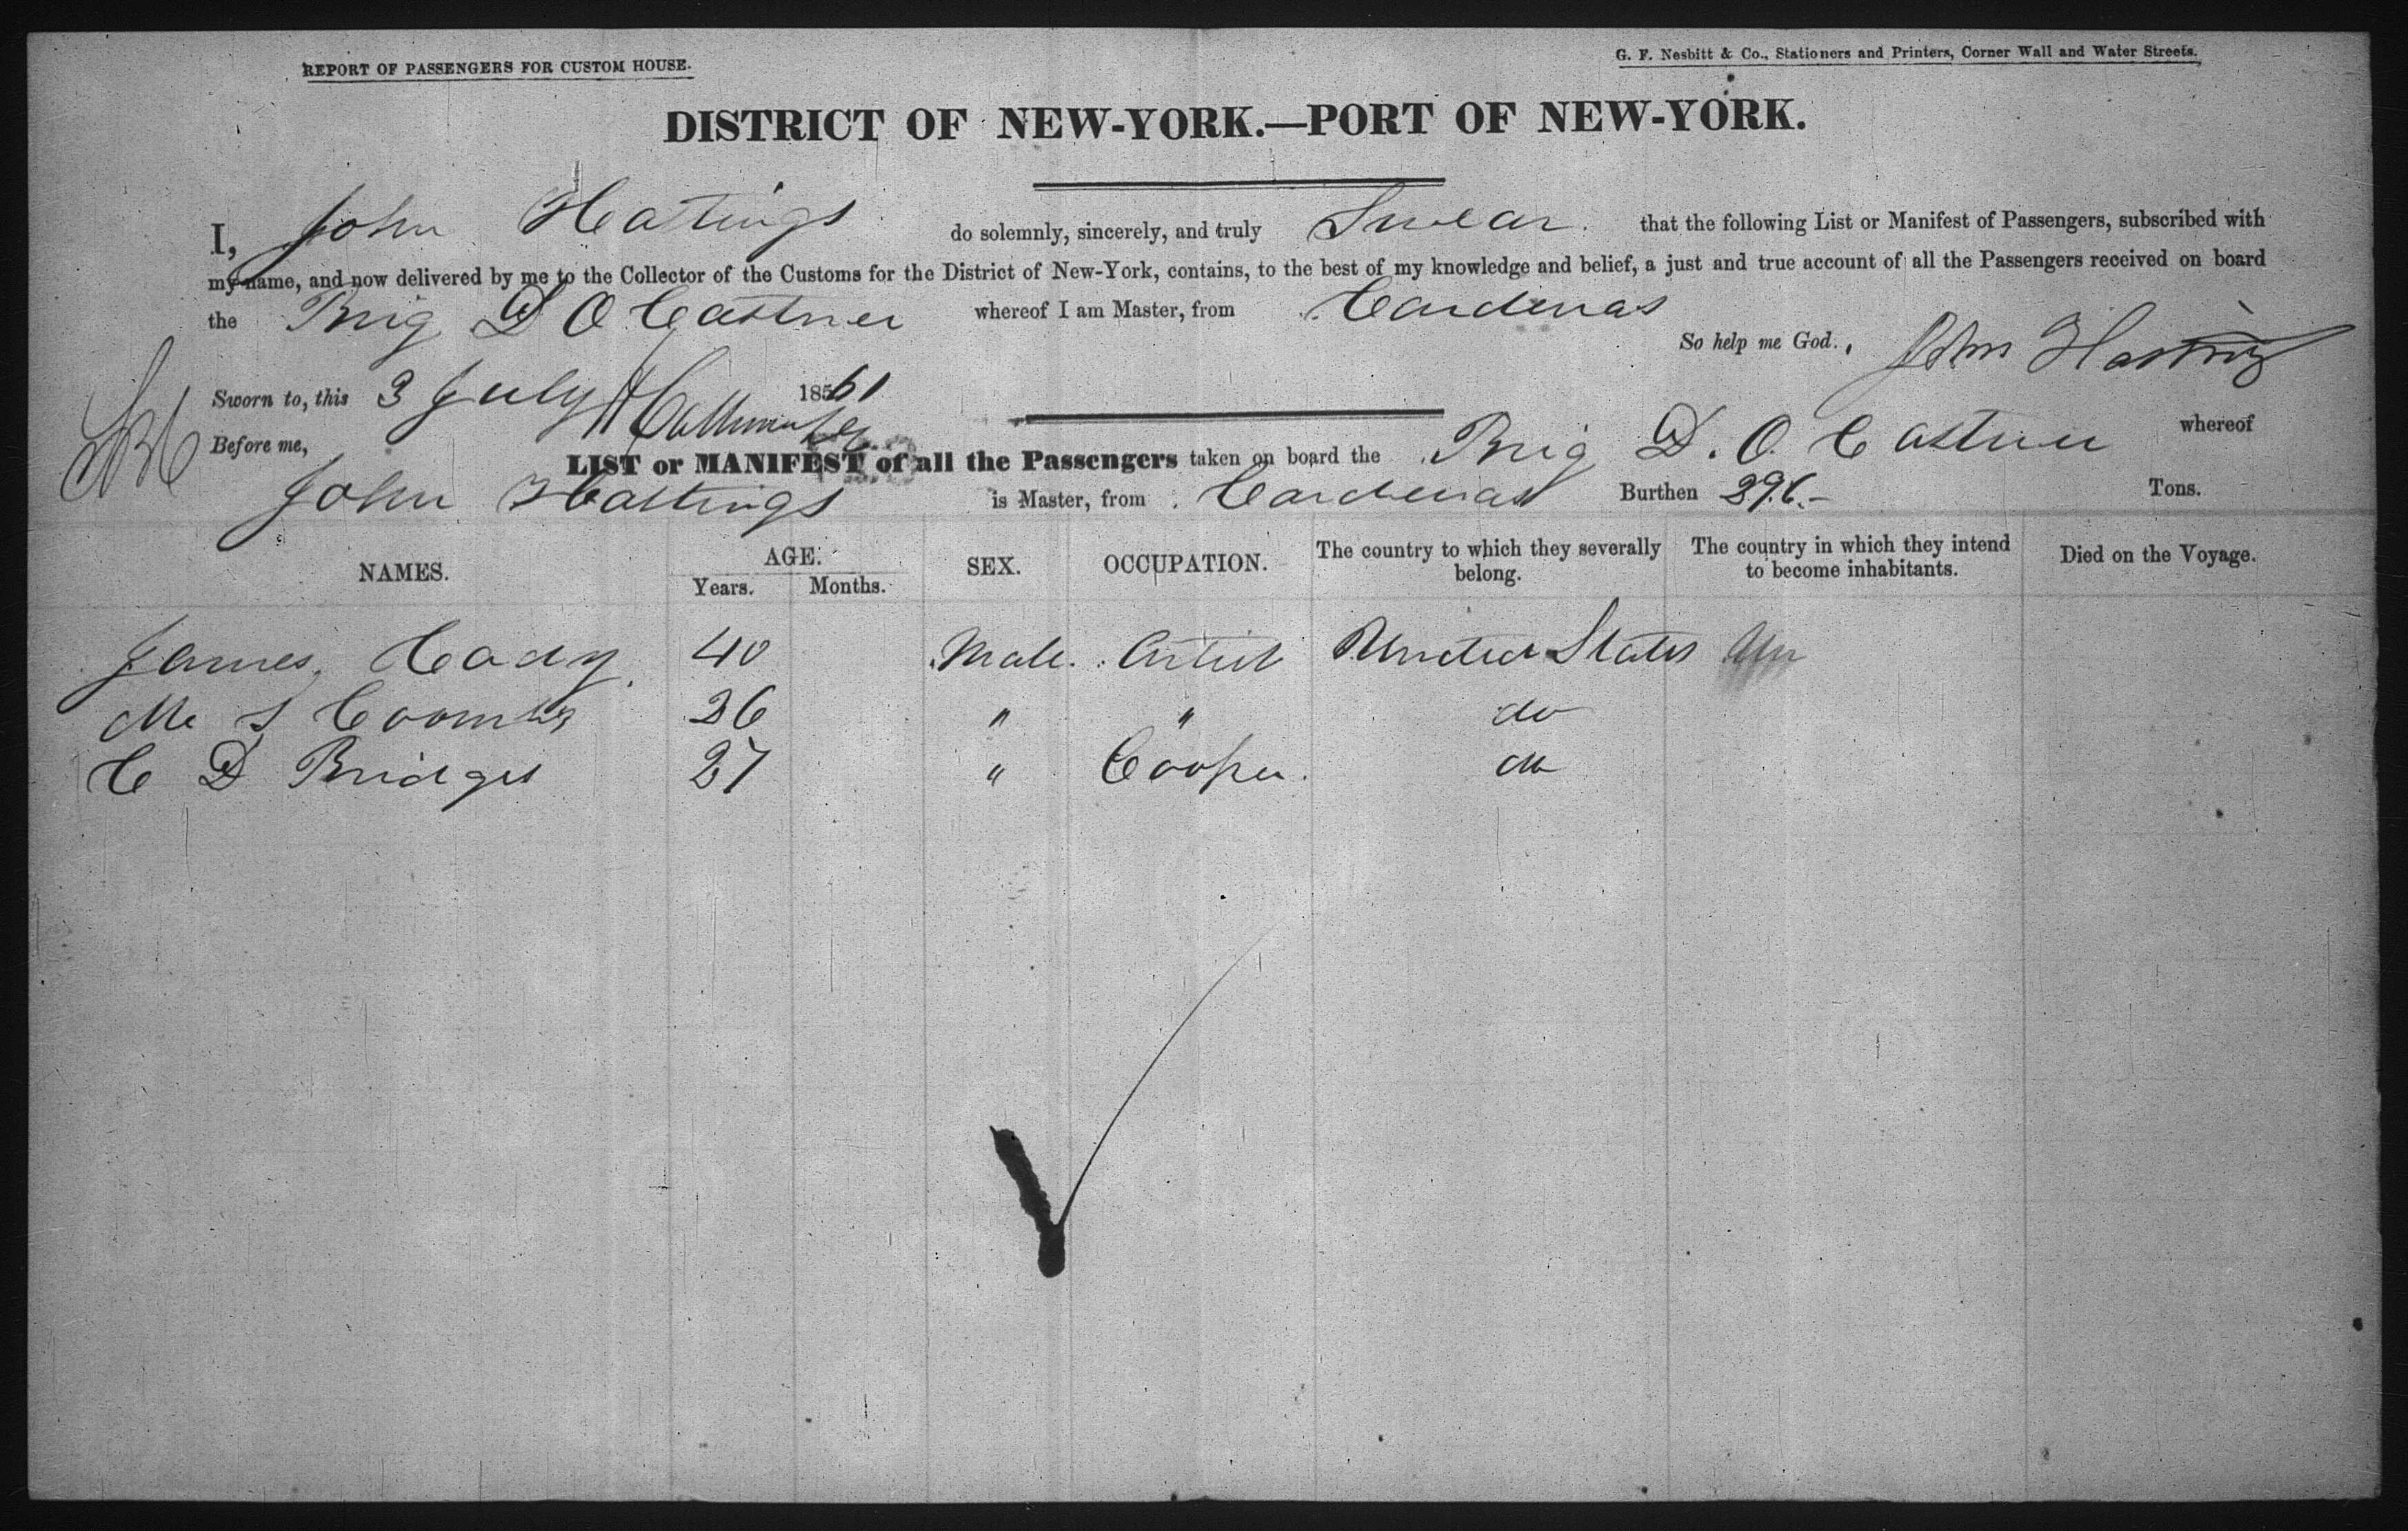 REPORT OF PASSENGERS FOR CUSTOM HOUSE.
G. F. Nesbitt & Co., Stationers and Printers, Corner Wall and Water Streets.
DISTRICT OF NEW-YORK.—PORT OF NEW-YORK.
I, John Hastings do solemnly, sincerely, and truly Swear that the following List or Manifest of Passengers, subscribed with
my name, and now delivered by me to the Collector of the Customs for the District of New-York, contains, to the best of my knowledge and belief, a just and true account of all the Passengers received on board
the Brig D O Castner whereof I am Master, from Cardenas
So help me God. John Hastings
Sworn to, this 3 July 18561
Before me,
LIST or MANIFEST of all the Passengers taken on board the Brig D. O. Castner whereof
John Hastings is Master, from Cardenas Burthen 296.- Tons.
NAMES. AGE. SEX. OCCUPATION. The country to which they severally belong. The country in which they intend to become inhabitants. Died on the Voyage.
Years. Months.
James Cady 40 Male. Artist United States Un
M S Coombs 26 " " do
C D Bridges 27 " Cooper. do